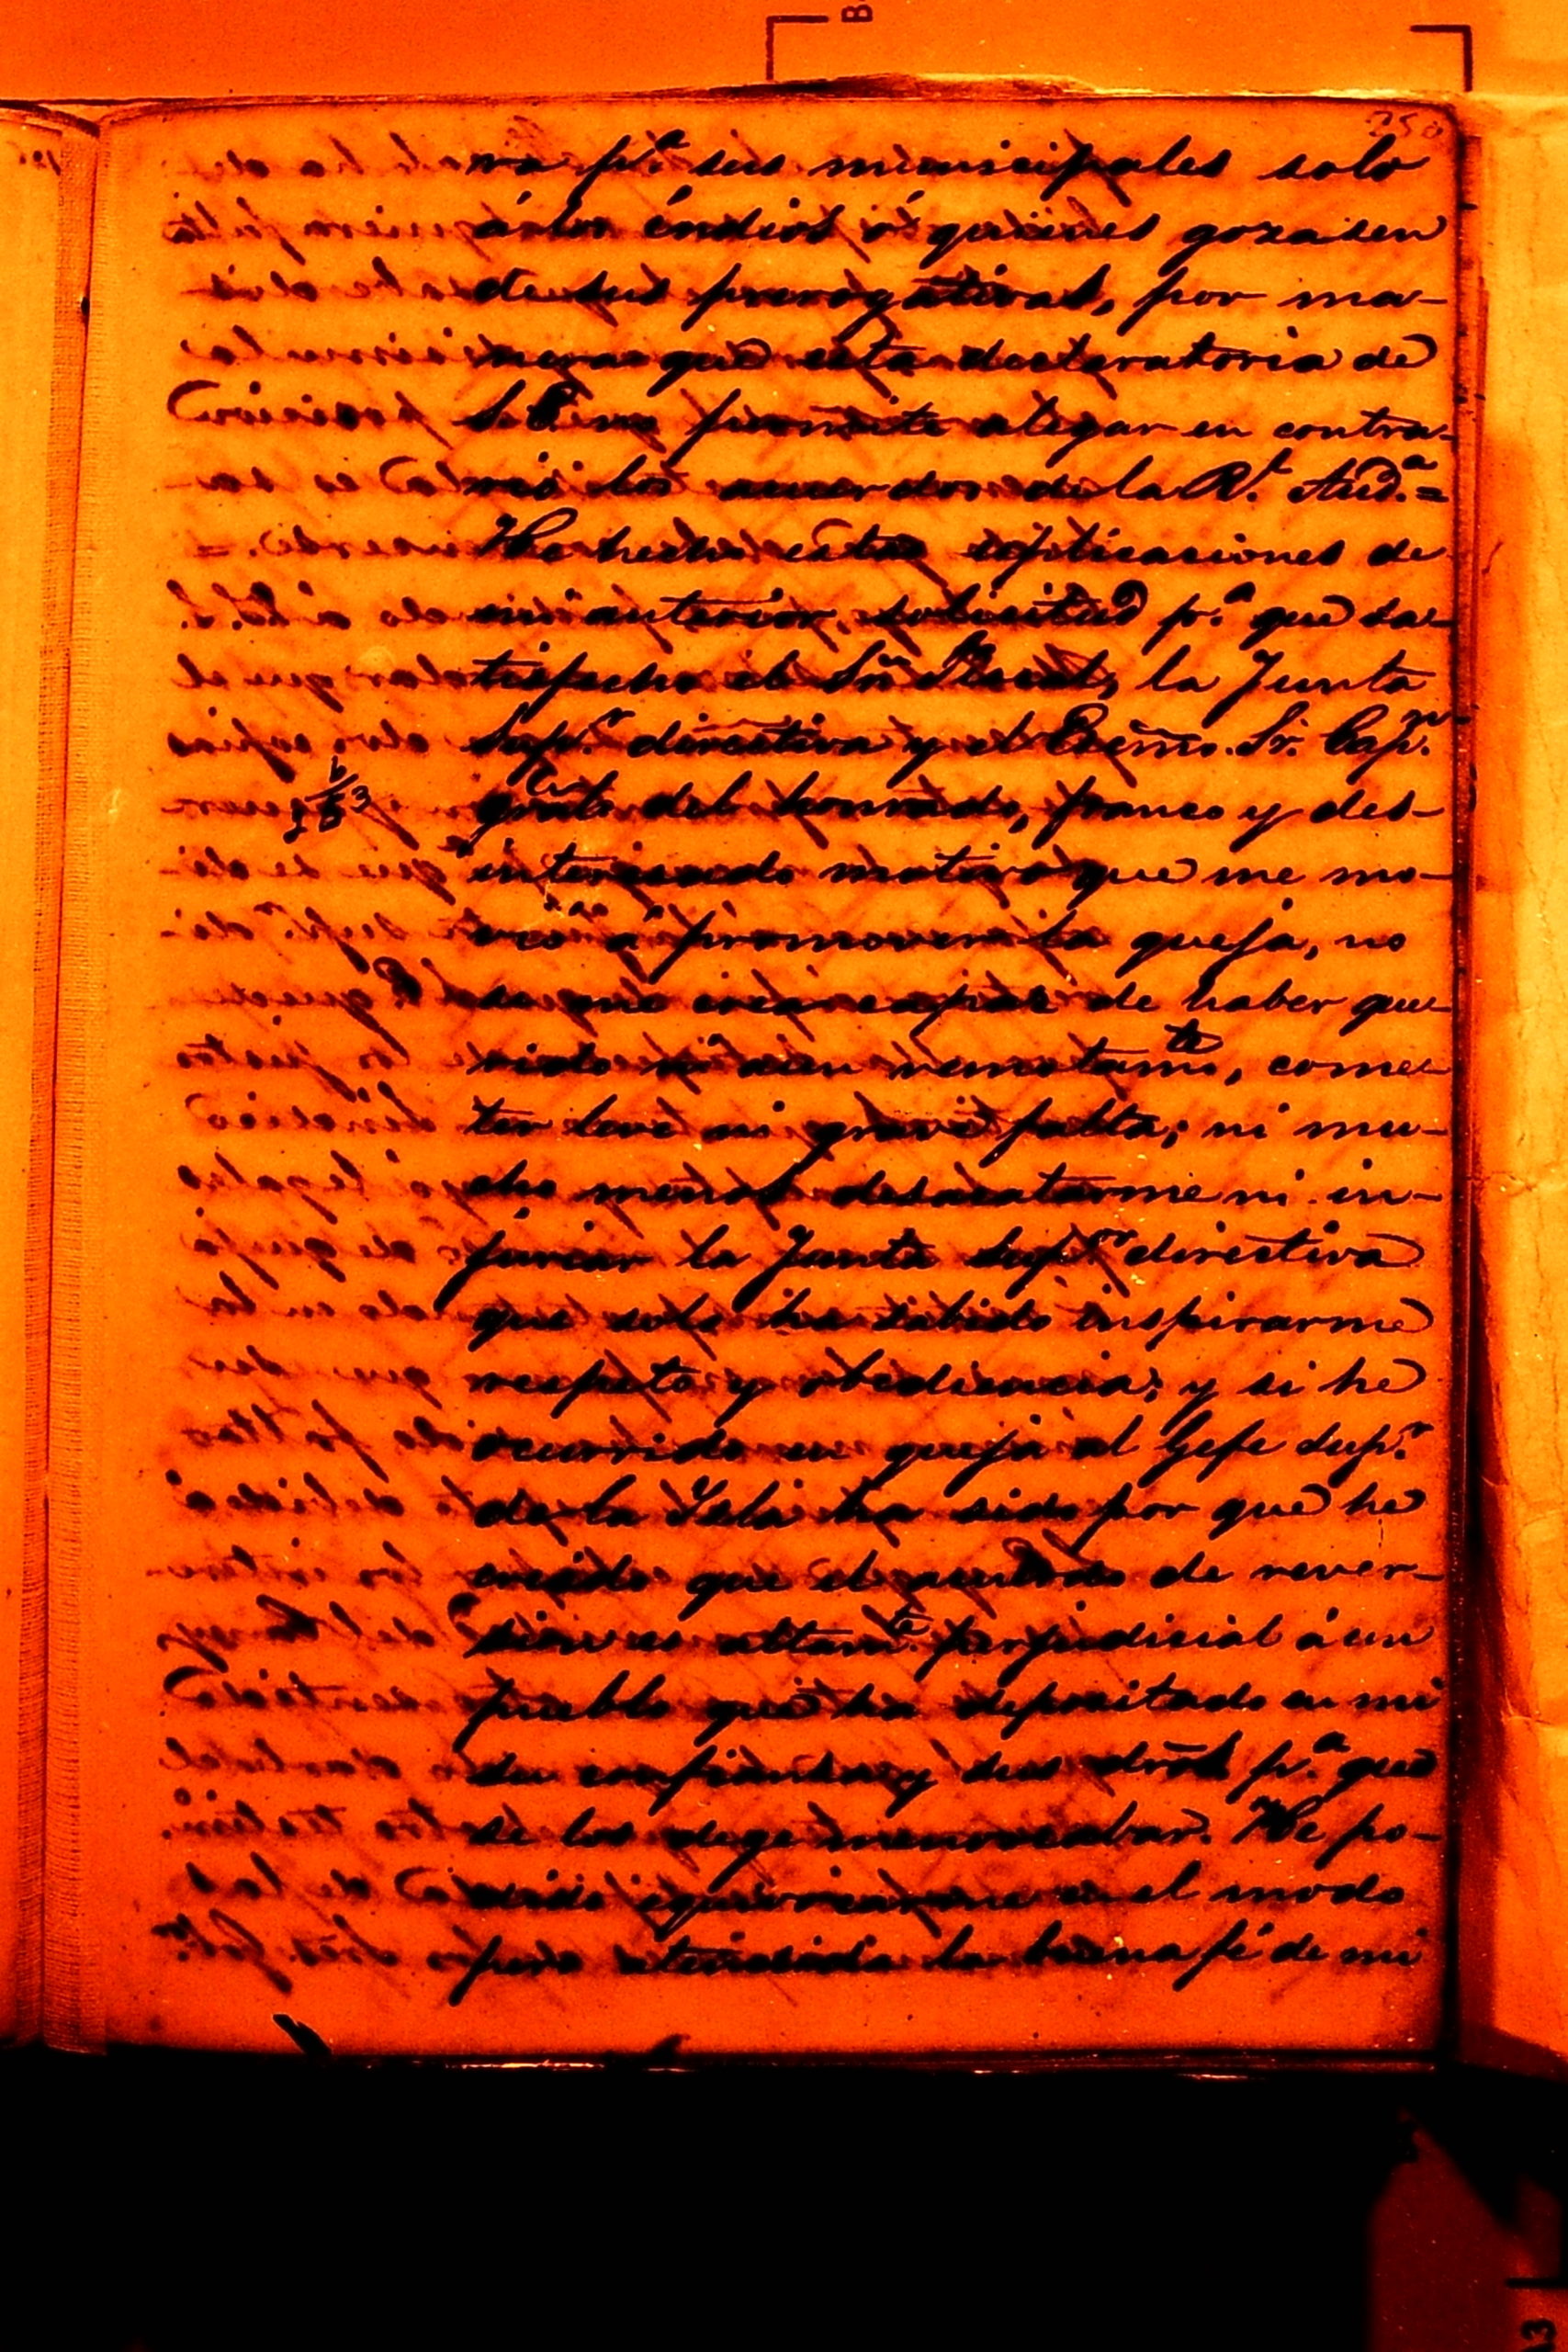 250
ra p.ª sus municipales solo
á los índios ó quienes gozasen
de sus prerogativas, por ma-
neras que esta declaratoria de
S. E. no permite alegar en contra-
rio los acuerdos de la R.l Aud.ª=
He hecho estas esplicaciones de
mi anterior, solicitud p.ª que sa-
tisfecho el Sr. Fiscal, la Junta
Sup.r directiva y el Excmo. Sr. Cap.n
gral del honrado, franco y des-
interesado motivo que me mo-
vió á promover la queja, no
se me crea capaz de haber que-
rido ni aun remotam.te, come-
ter leve ni grave falta; ni mu-
cho menos desacatarme ni in-
juriar la Junta Sup.or directiva
que solo ha sabido inspirarme
respeto y obediencia; y si he
ocurrido en queja al Gefe Sup.r
de la Isla ha sido por que he
creido que el acuerdo de rever-
sion es altam.te perjudicial á un
pueblo que ha depositado en mi
su confianza y sus dros p.ª que
se los deje menoscabar. He po-
dido equivocarme en el modo
pero atendida la buena fé de mi